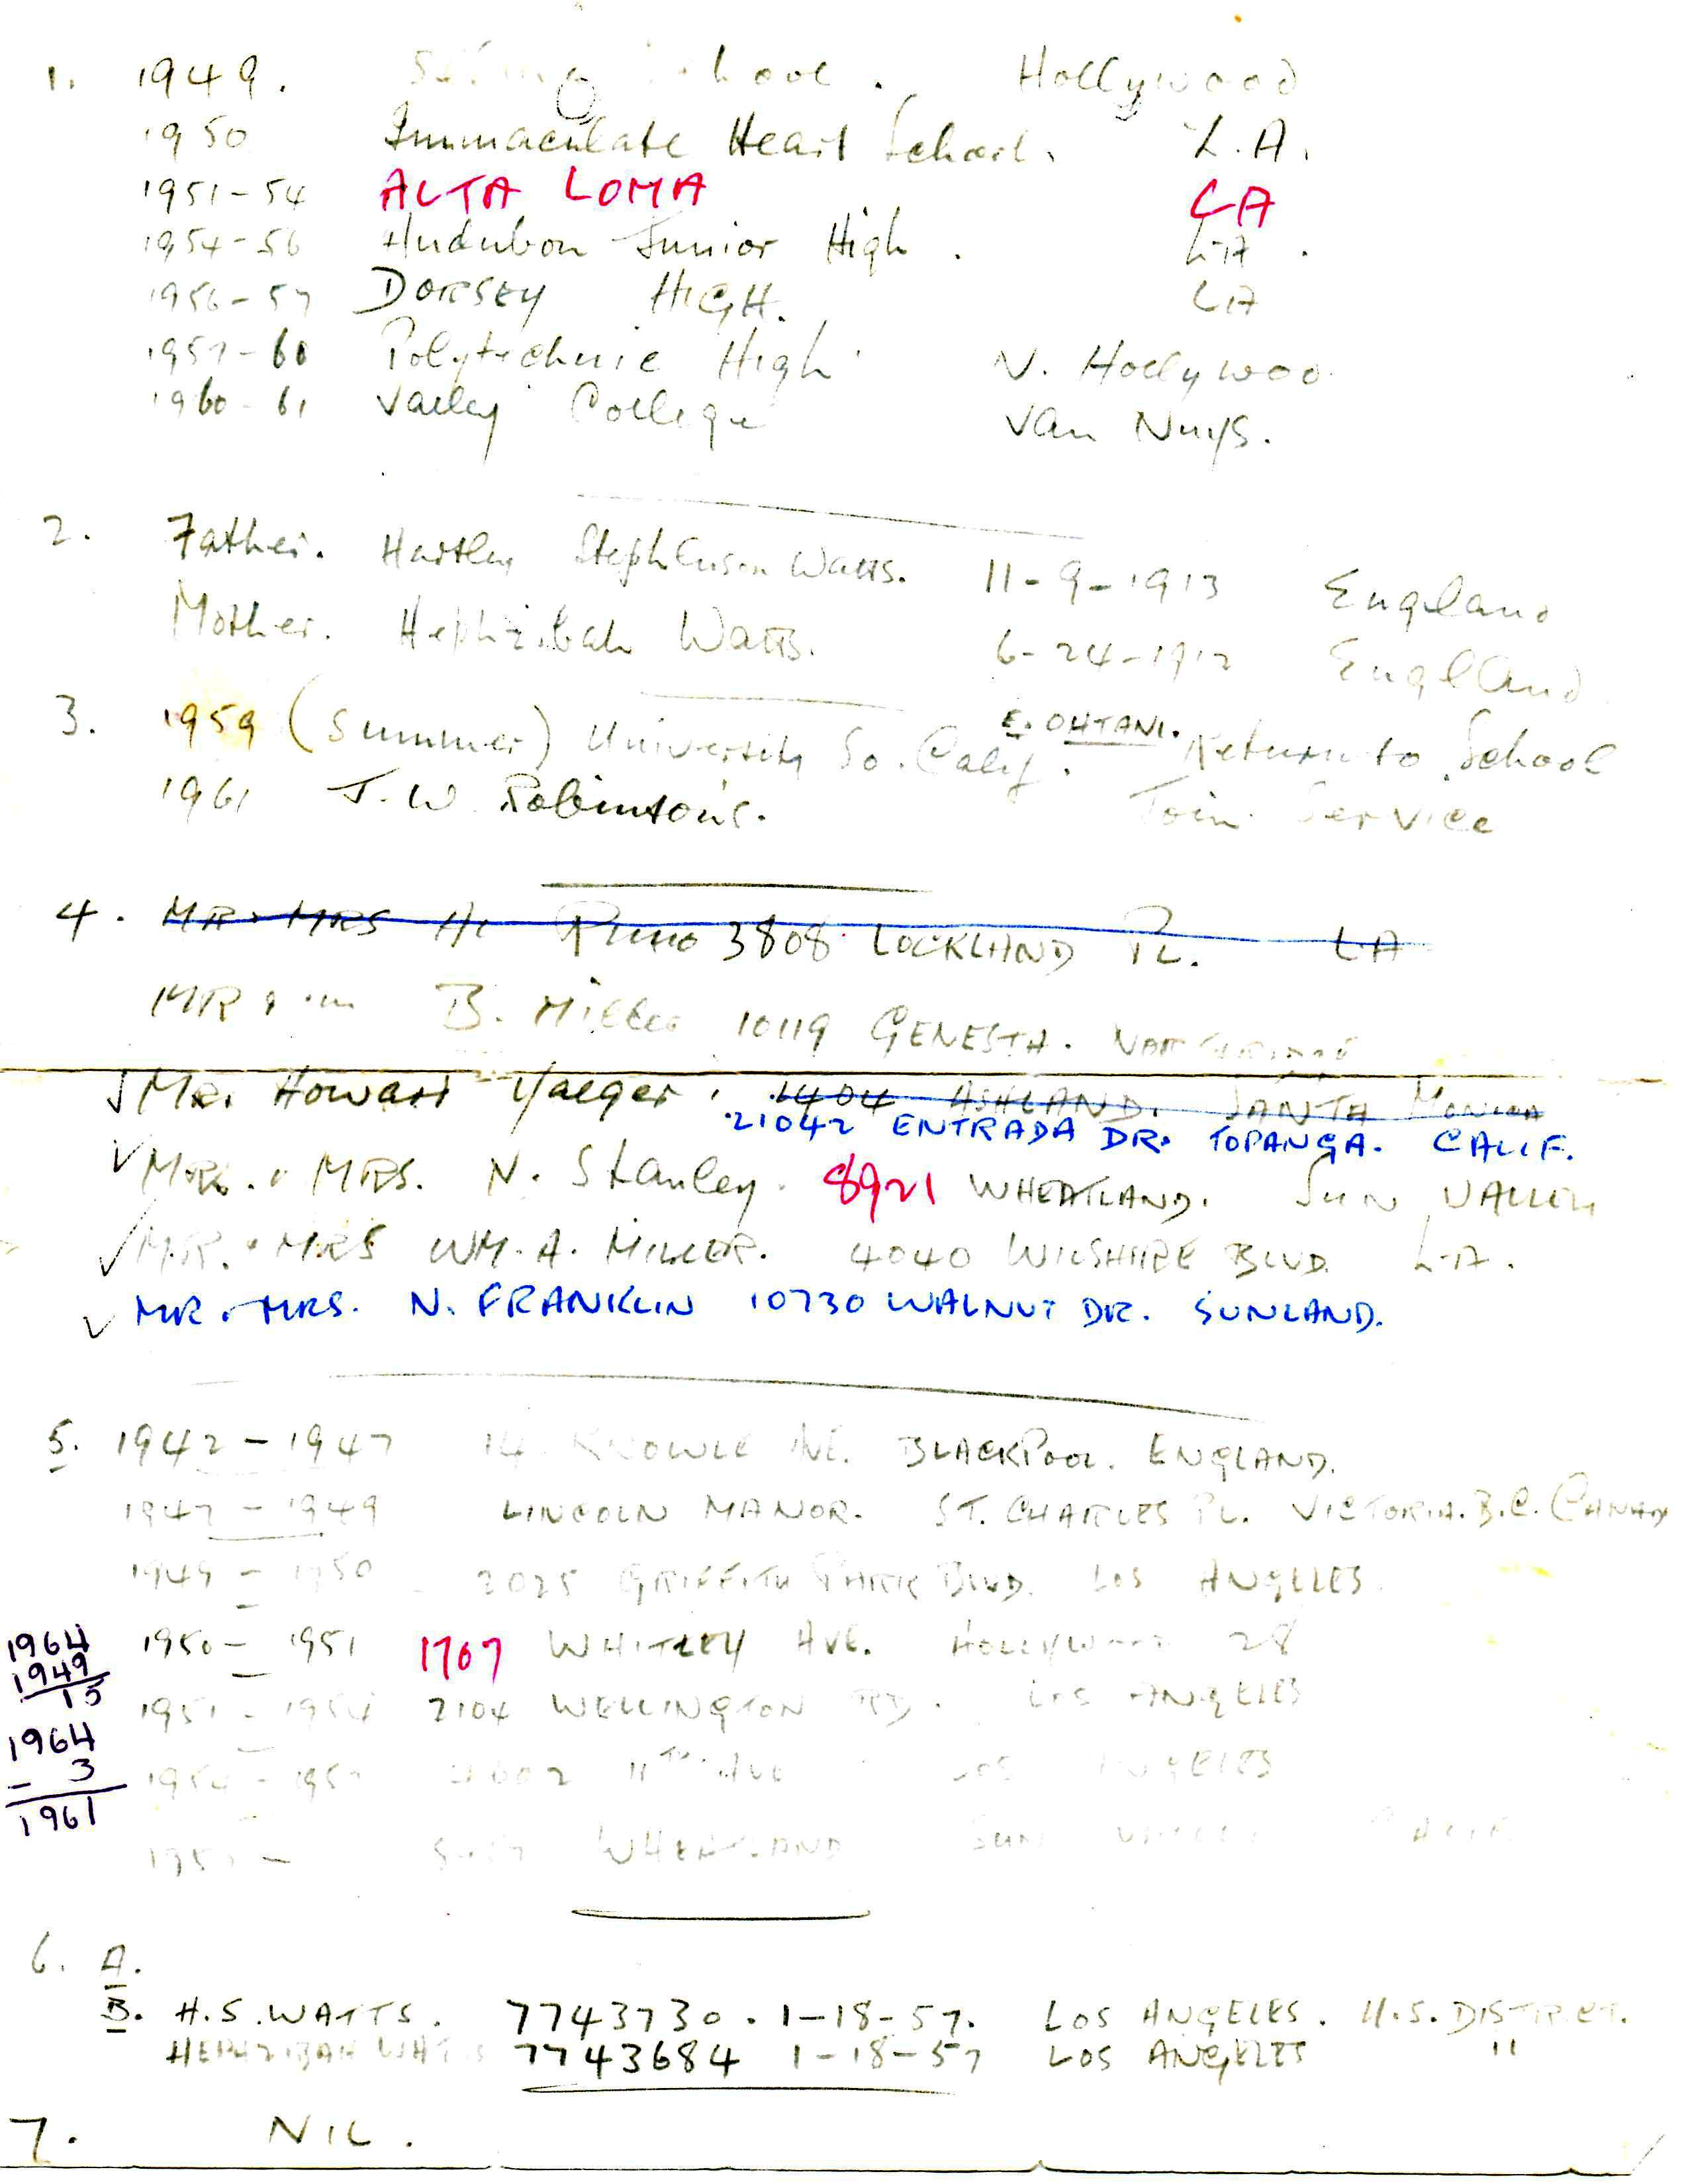 1. 1949. Hollywood
1950 Immaculate Heart School. L.A.
1951-54 ALTA LOMA LA
1954-56 Audubon Junior High. LA.
1956-57 DORSEY HIGH. LA
1957-60 Polytechnic High N. Hollywoo
1960-61 Valley College Van Nuys.
2. Father. Hartley Stephenson Watts. 11-9-1913 England
Mother. Hephzibah Watts. 6-24-1912 England
E. OHTANI.
3. 1959 (Summer) University So. Calif. Return to School
1961 J.W. Robinson's. Join Service
4. MR MRS 3808 LOCKLAND PL. LA
MR B. Miller 10119 GENESTA.
√ Mr. Howard Yaeger. 1404 ASHLAND. SANTA MONICA
21042 ENTRADA DR. TOPANGA. CALIF.
√ MR. & MRS. N. Stanley. 8921 WHEATLAND. SUN VALLEY
√ MR. & MRS WM. A. MILLER. 4040 WILSHIRE BLVD. LA.
√ MR & MRS. N. FRANKLIN 10730 WALNUT DR. SUNLAND.
5. 1942-1947 14 KNOWLE AVE. BLACKPOOL. ENGLAND.
1947-1949 LINCOLN MANOR. ST. CHARLES PL. VICTORIA. B.C. CANAD
1949-1950 2025 GRIFFITH PARK BLVD. LOS ANGELES.
1964
1949
15
1950-1951 1767 WHITLEY AVE. HOLLYWOOD 28
1951-1954 2104 WELLINGTON RD. LOS ANGELES
1964
- 3
1961
11TH AVE LOS ANGELES
WHEATLAND SUN VALLEY CALIF
6. A.
B. H.S. WATTS. 7743730. 1-18-57. LOS ANGELES. U.S. DISTRICT.
HEPHZIBAH WATTS 7743684 1-18-57 LOS ANGELES "
7. NIL.